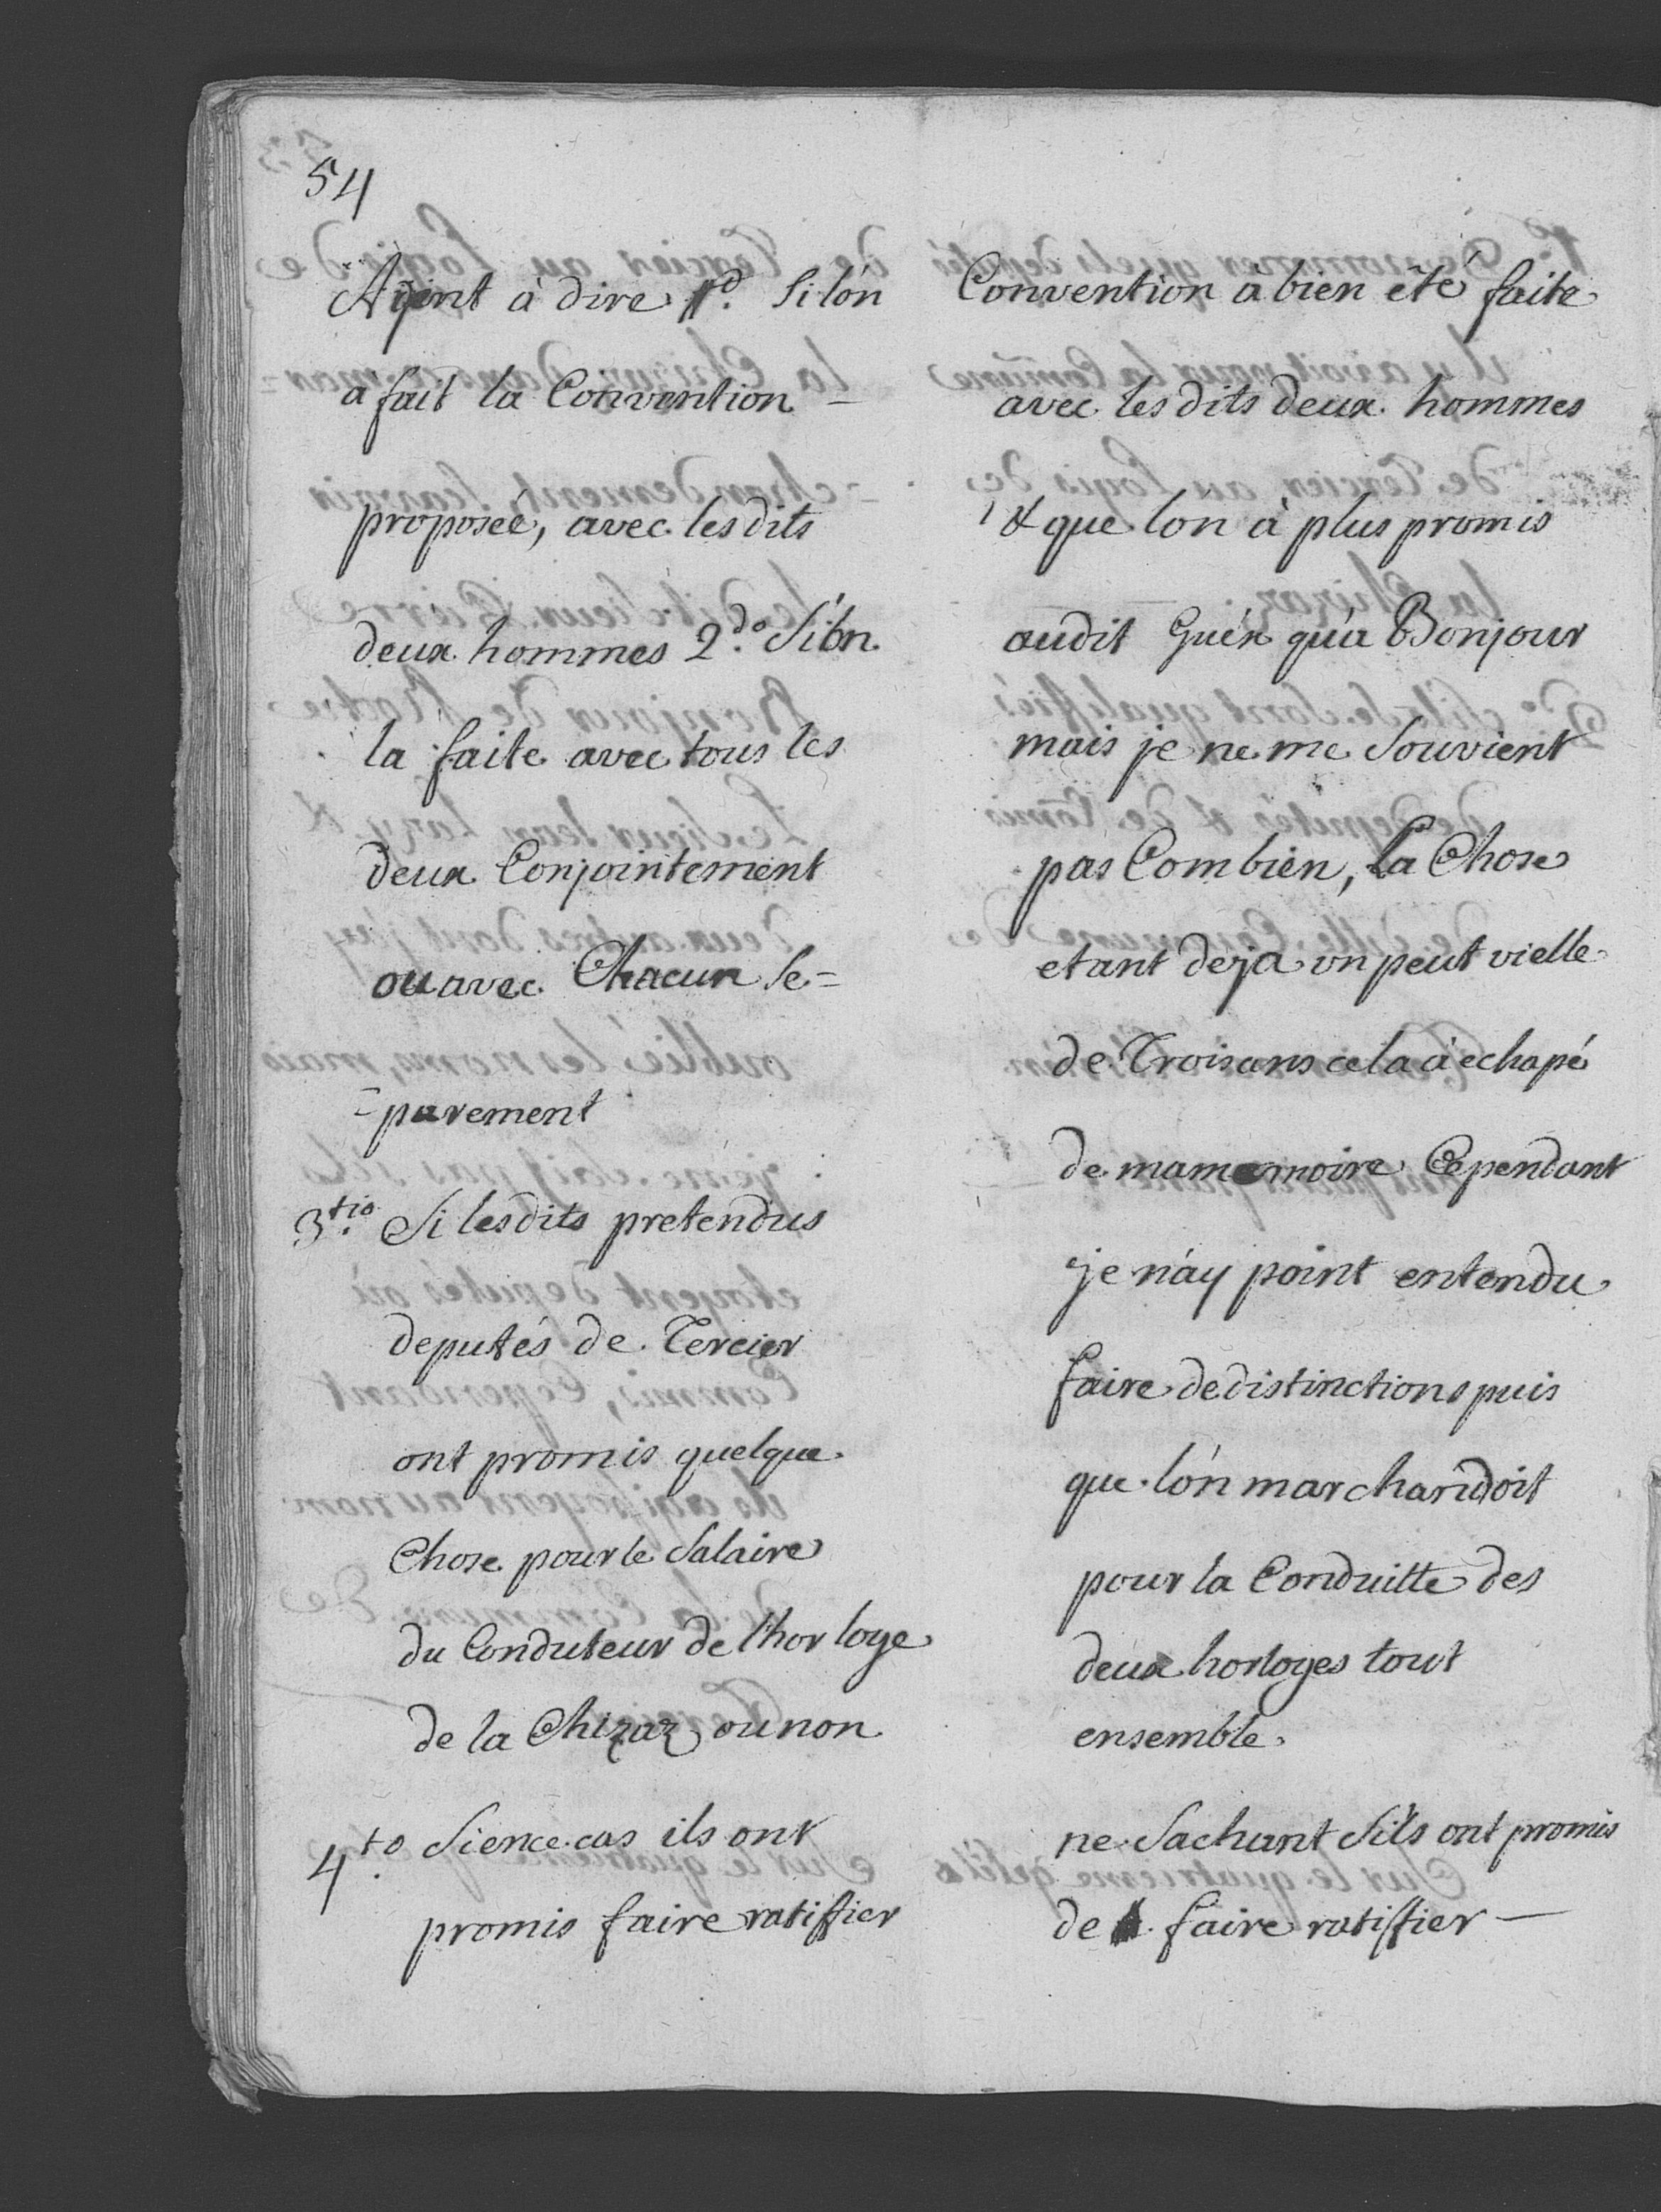 54
Ajent à dire pd. Si lón
a fait la Convention –
proposeé, avec les dits
deux hommes 2.do Si lón
la faite avec tous les
deux Conjointement
ou avec Chacun Se=
=parement
3.tio Si lesdits pretendus
deputés de Tercier
ont promis quelque
Chose pour le Salaire
du Conduteur de l'horloge
de la Chizaz ou non
4.to Si ence cas ils ont
promis faire ratiffier
Convention à bien êté faite
avec les dits deux hommes
& que lón à plus promis
audit Guéx qu'a Bonjour
mais je ne me Souvient
pas Combien, La Chose
etant deja un peut vielle
de Trois ans cela à echapé
de ma memoire Cependant
je n'ay point entendu
faire de distinctions puis
que lón marchandoit
pour la Conduitte des
deux horloges tout
ensemble.
ne Sachant S'ils ont promis
de faire ratiffier —